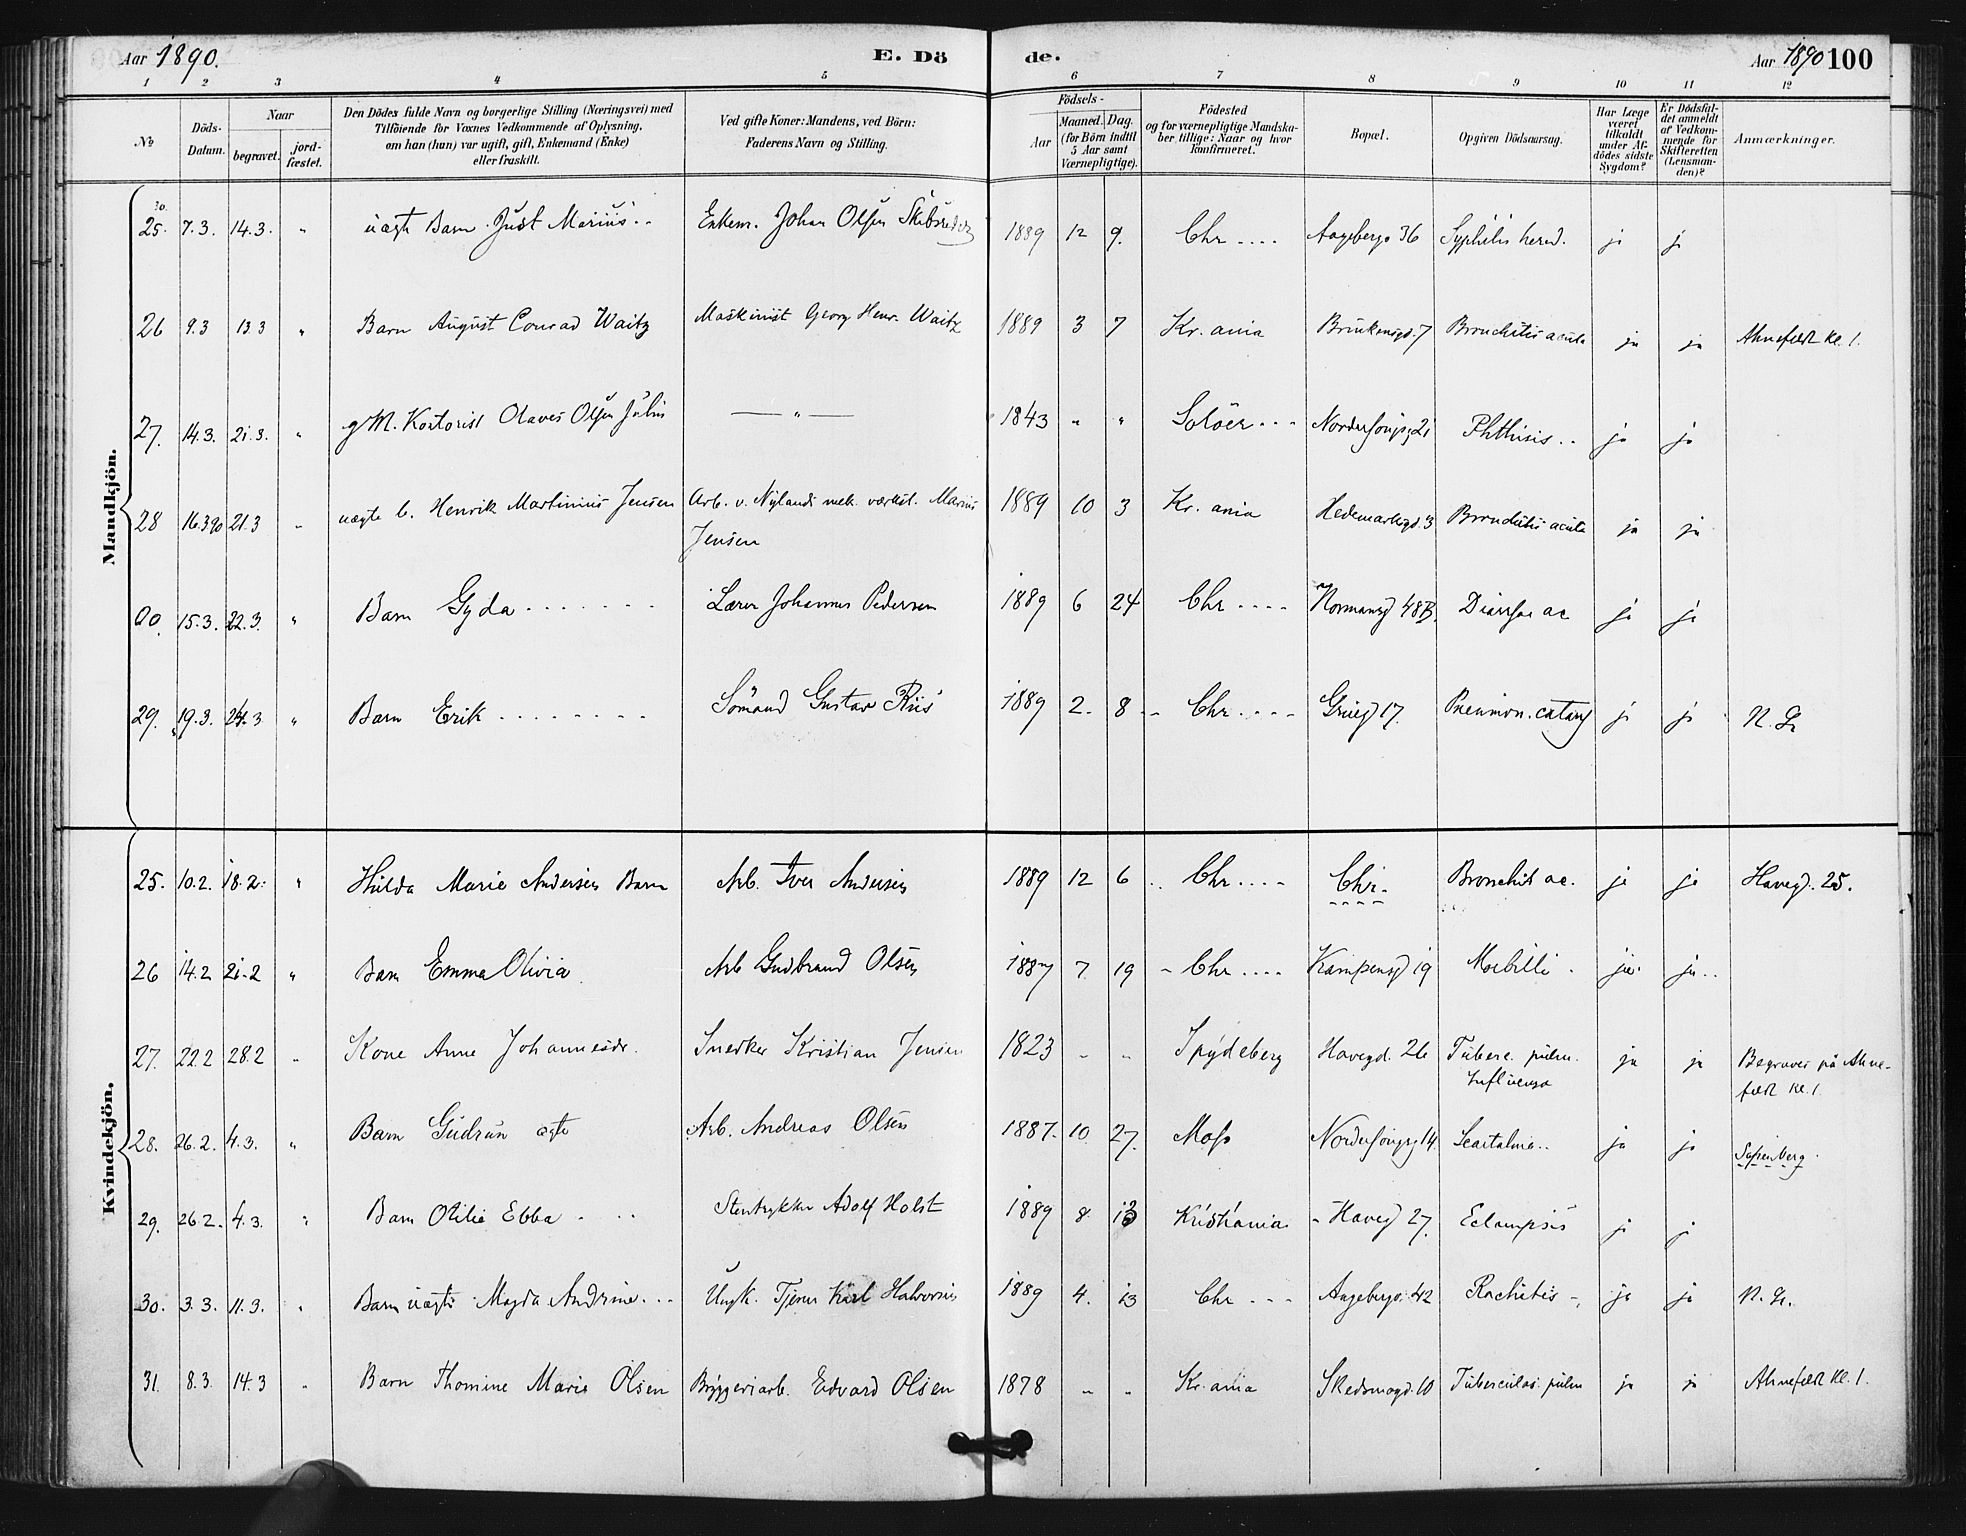 Aar 1890.
E. Döde.
Aar 1890 100
1 2 3 4 5 6 7 8 9 10 11 12
No
Döds-Datum.
Naar
begravet.
jordfæstet.
Den Dödes fulde Navn og borgerlige Stilling (Næringsvei) med
Tilföiende for Voxnes Vedkommende af Oplysning,
om han (hun) var ugift, gift, Enkemand (Enke)
eller fraskilt.
Ved gifte Koner: Mandens, ved Börn:
Faderens Navn og Stilling.
Födsels-
Aar
Maaned. Dag.
(for Börn indtil
5 Aar samt
Værnepligtige).
Födested
og for værnepligtige Mandska-
ber tillige: Naar og hvor
konfirmeret.
Bopæl.
Opgiven Dödsaarsag.
Har Læge
været
tilkaldt
under Af-
dödes sidste
Sygdom?
Er Dödsfal-
det anmeldt
af Vedkom-
mende for
Skifteretten
(Lensman-
den)?
Anmærkninger.
Mandkjön.
30.
25. 7.3. 14.3. " uægte Barn Just Marius Enkem. Johan Olsen Skibsreder 1889 12 9. Chr .... Aagebergv 36 Syphilis hered. ja ja
26 9.3 13.3 " Barn August Conrad Waitz Maskinist Georg Henr. Waitz 1889 3 7 Kr.ania Brinkensgd. 7 Bronchitis acuta ja ja Ahnefeldt Kl. 1.
27. 14.3. 21.3. " g M. Olaves Olsen — " — 1843 " " Solöer... 21 Phthisis .. ja ja
28 16.3.90 21.3 " uægte b. Henrik Martinius Jensen Arb. v. Nylands mek. værkst. Marius
Jensen 1889 10 3 Kr.ania Hedemarksgd. 3 Bronchitis acuta ja ja
00. 15.3. 22.3. " Barn Gyda ....... Lærer Johannes Pedersen 1889 6 24 Chr .... Normansgd 48B. Diarrhoe ac ja ja
29. 19.3. 24.3 " Barn Erik ........ Sömand Gustav Riis 1889 2. 8 - Chr .... Griegd 17. Pneumon. catarrh ja ja N. Gr
Kvindekjön.
25. 10.2. 18.2. " Hulda Marie Andersen Barn Arb. Iver Andersen 1889 12 6 .. Chr .... Chr. Bronchit ac. ja ja Havegd. 25.
26 14.2 21.2 " Barn Emma Olivia Arb Gudbrand Olsen 1887 7. 19 - Chr .... Kampensgd 19 Morbilli ja ja ..
27. 22.2 28.2 " Kone Anne Johannesdr. Snedker Kristian Jensen 1823 " " Spydeberg Havegd. 26 Tuberc. pulm.
Influenza ja ja Begraves på Ahne-
feldt Kl. 1.
28. 26.2. 4.3. " Barn Gudrun ægte Arb. Andreas Olsen 1887. 10 27. Moss 14. Scarlatina .. ja ja Sofienberg.
29. 26.2. 4.3. " Barn Otilie Ebba Stentrykker Adolf Holst 1889 8 Kristiania - Havegd 27. Eclampsis ja ja
30. 3.3. 11.3. " Barn uægte Magda Andrine ... Ungk. Tjener Karl Halvorsen 1889 4. 13 Chr ... Aagebergv. 42 Rachitis ja ja N. Gr.
31. 8.3. 14.3 " Barn Thomine Marie Olsen Bryggeriarb. Edvard Olsen 1878 " " Kr.ania Skedsmogd. 10 Tuberculos. pulm ja ja Ahnefeldt Kl. 1.